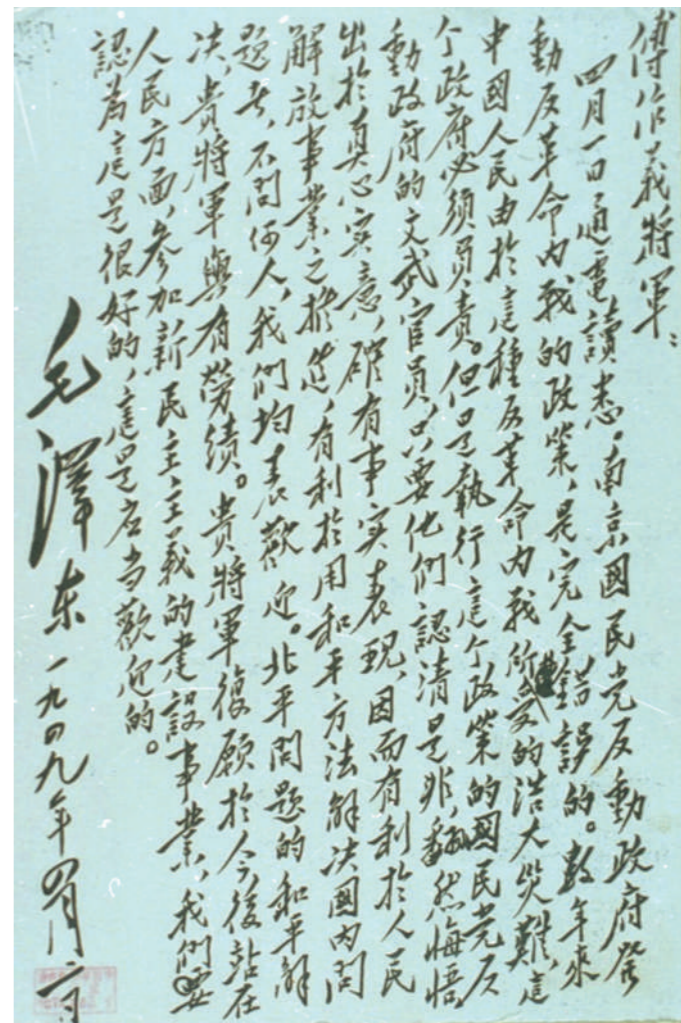 傅作義將軍：
四月一日通電讀悉。南京國民党反動政府發
動反革命內戰的政策，是完全錯誤的。數年來
中國人民由於這種反革命內戰所受的浩大災難，這
个政府必須負責。但是執行這个政策的國民党反
動政府的文武官員，只要他們認清是非，翻然悔悟，
出於真心实意，確有事实表現，因而有利於人民
解放事業之推進，有利於用和平方法解决國內問
題者，不問何人，我們均表歡迎。北平問題的和平解
决，貴將軍與有勞績。貴將軍復願於今後站在
人民方面，参加新民主主義的建設事業，我們要
認為這是很好的，這是应当歡迎的。
毛澤东 一九四九年四月二日